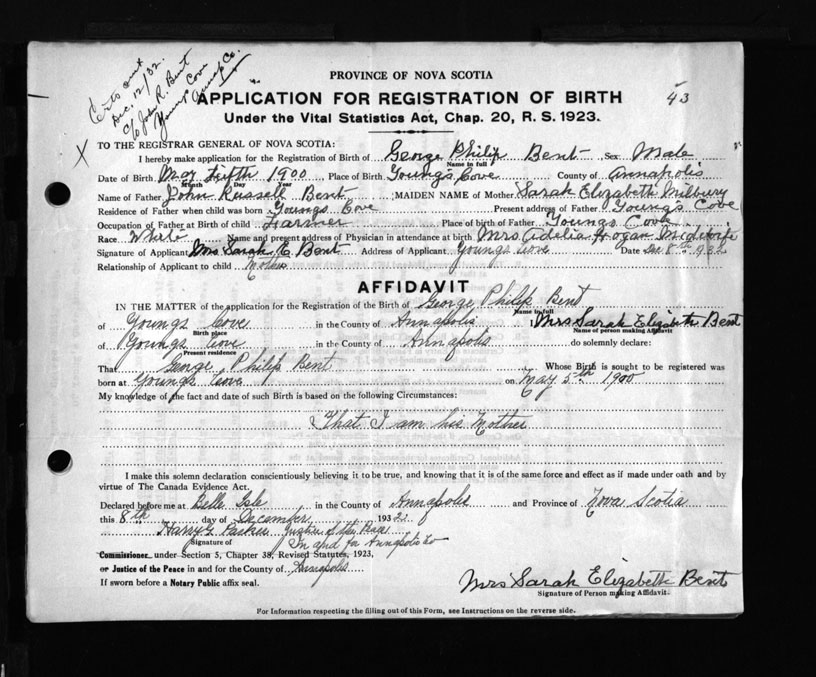 Certs sent
Dec. 12/32.
c/o John R. Bent
Young's Cove
Annap. Co.
43
PROVINCE OF NOVA SCOTIA
APPLICATION FOR REGISTRATION OF BIRTH
Under the Vital Statistics Act, Chap. 20, R. S. 1923.
X
TO THE REGISTRAR GENERAL OF NOVA SCOTIA:
I hereby make application for the Registration of Birth of George Philip Bent Sex Male
Name in full
Date of Birth May fifth 1900 Place of Birth Young's Cove County of Annapolis
Month Day Year
Name of Father John Russell Bent MAIDEN NAME of Mother Sarah Elizabeth Milbury
Residence of Father when child was born Youngs Cove Present address of Father Young's Cove
Occupation of Father at Birth of child Farmer Place of birth of Father Youngs Cove
Race White Name and present address of Physician in attendance at birth Mrs Adelia Hogan Midwife
Signature of Applicant Mrs Sarah E Bent Address of Applicant Youngs Cove Date Dec 8th 1932
Relationship of Applicant to child Mother
AFFIDAVIT
IN THE MATTER of the application for the Registration of the Birth of George Philip Bent
Name in full
of Youngs Cove in the County of Annapolis I Mrs Sarah Elizabeth Bent
Birth place Name of person making Affidavit
of Youngs Cove in the County of Annapolis do solemnly declare:
Present residence
That George Philip Bent Whose Birth is sought to be registered was
born at Youngs Cove on May 5th 1900
My knowledge of the fact and date of such Birth is based on the following Circumstances:
That I am his Mother
I make this solemn declaration conscientiously believing it to be true, and knowing that it is of the same force and effect as if made under oath and by
virtue of The Canada Evidence Act.
Declared before me at Belle Isle in the County of Annapolis and Province of Nova Scotia
this 8th day of December 1932
Harry G Parker Justice of the Peace
Signature of In and for Annapolis Co
Commissioner under Section 5, Chapter 38, Revised Statutes, 1923,
or Justice of the Peace in and for the County of Annapolis
If sworn before a Notary Public affix seal.
Mrs Sarah Elizabeth Bent
Signature of Person making Affidavit.
For Information respecting the filling out of this Form, see Instructions on the reverse side.